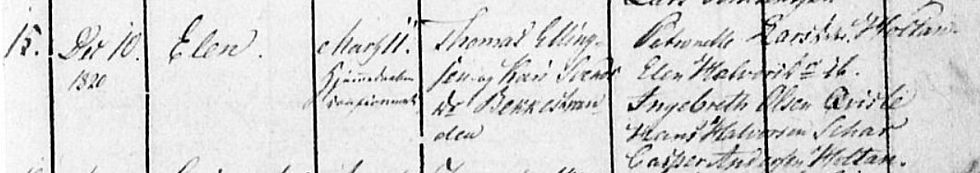 15. Dec 10. 1820 Elen. Marz 11. Thomas Elling-
sen og Kari Svends
dr Bekkestran
den
Petronelle Larsdr. Holtan
Elen Halvorsdr ib.
Ingebreth Olsen Qvisle
Hans Halvorsen Schar
Casper Andersen Holtan.